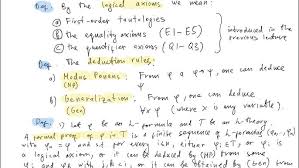 Def. By the logical axioms we mean:
a) First-order tautologies
b) the equality axioms (E1-E5)
c) the quantifier axioms (Q1-Q3)
introduced in the
previous lecture
Def. The deduction rules:
a) Modus Ponens: From φ and φ→ψ, one can deduce ψ
(MP)
b) Generalization: From φ, one can deduce
(Gen) ∀xφ (where x is any variable).
Def. i) Let φ be an L-formula and T be an L-theory.
A formal proof of φ in T is a finite sequence of L-formulas
with φ = φ and s.t. for every i≤n, either φᵢ ∈ T, or φᵢ is
a logical axiom, or it can be deduced by (MP) from some
and with j,k<i, or it can be obtained by (Gen) from